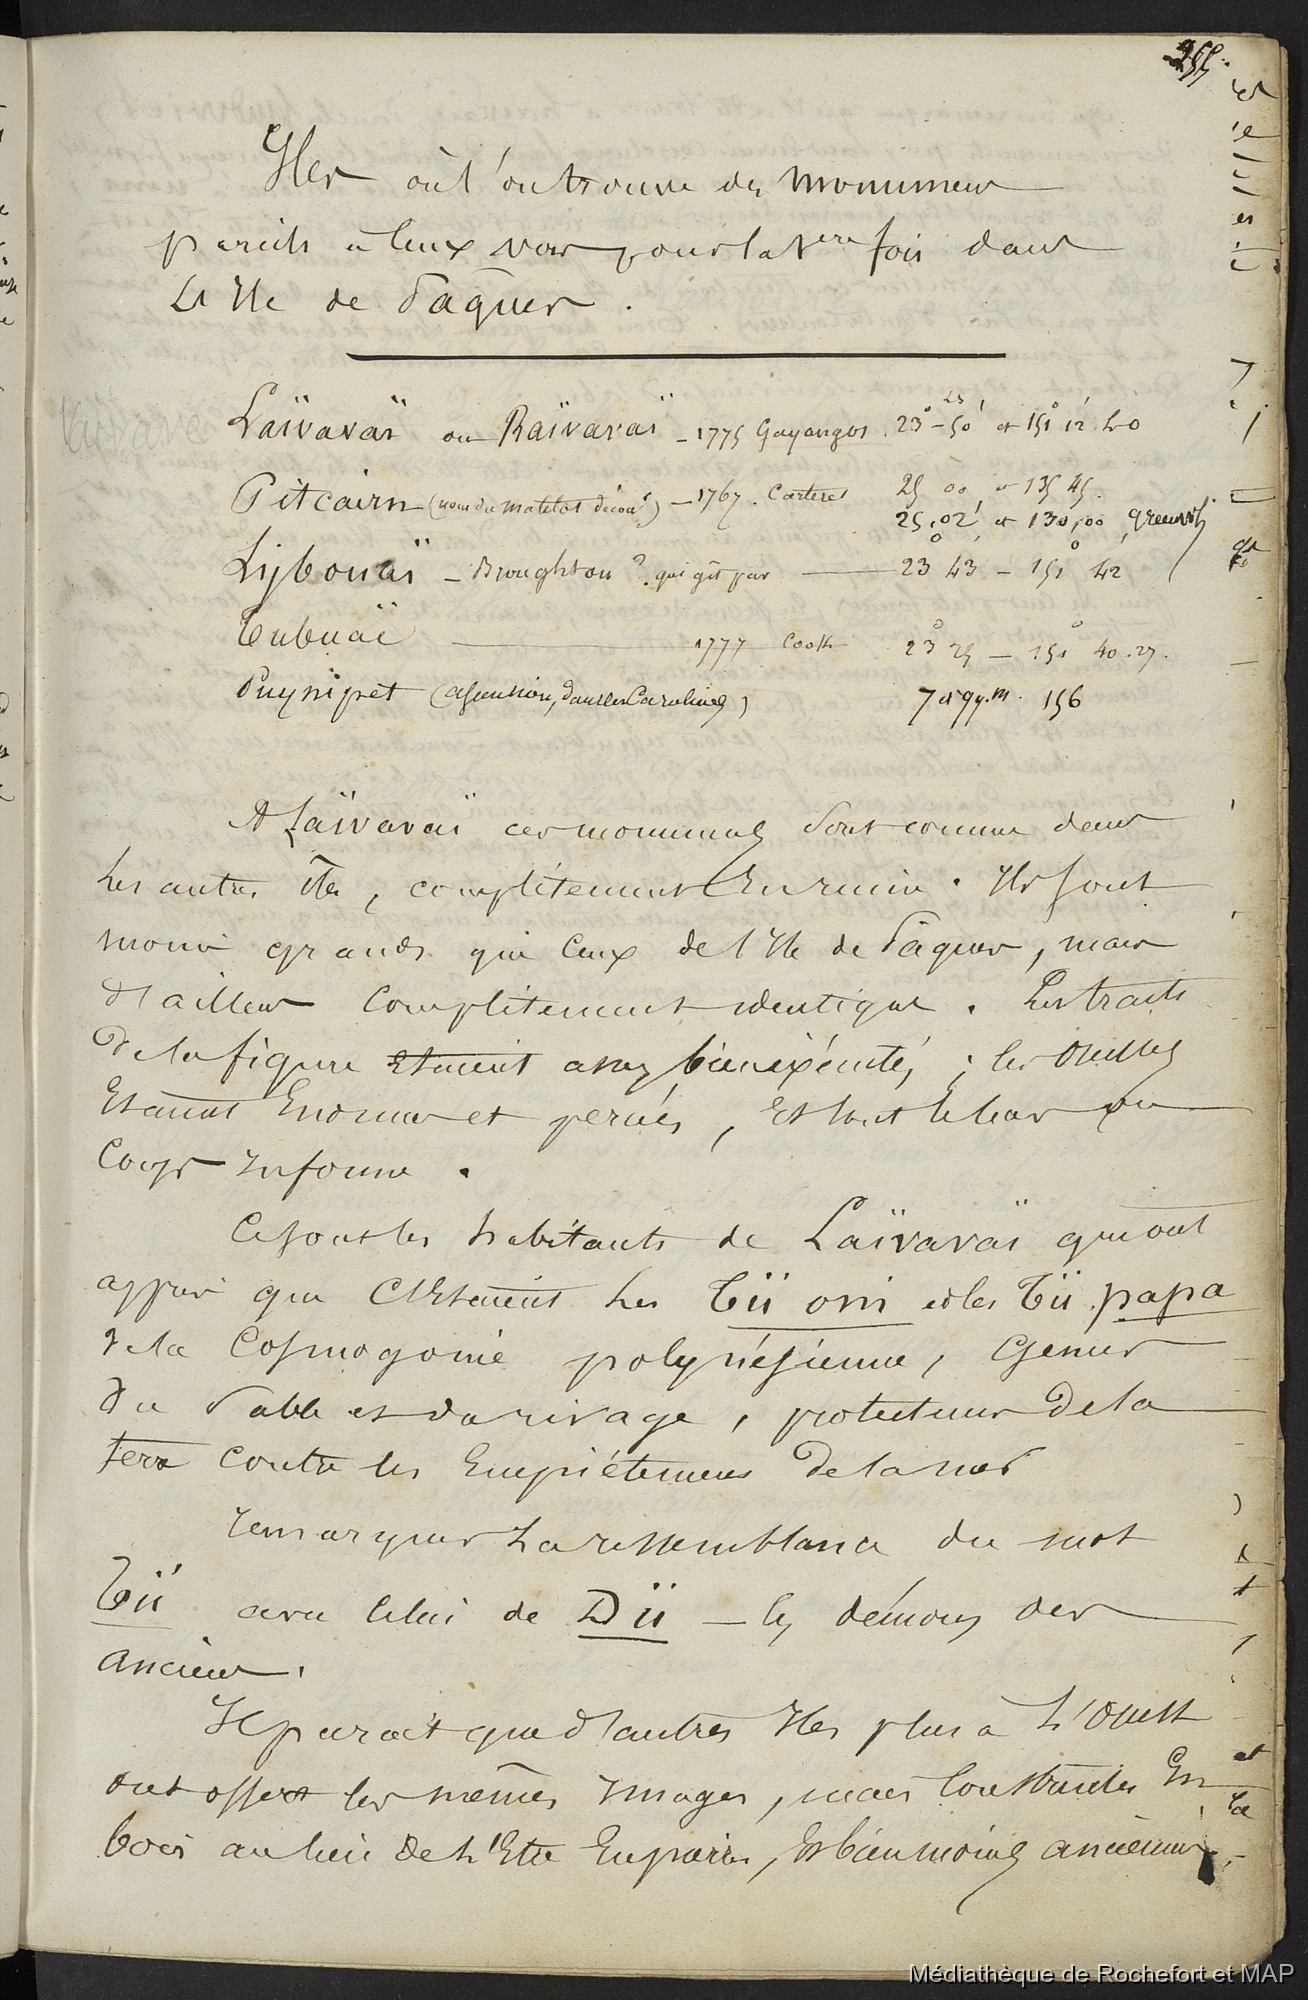 255.
Iles où l'on trouve des monumens
pareils à ceux vus pour la 1ere fois dans
L'Ile de Pâques.
Laïvavaï ou Raïvavaï - 1775 Gayangos. 23° - 50' et 151° 12' 20
Pitcairn (nom du matelot décou.) - 1767. Carteret 25 00 et 135 45.
25,02' et 130,00 Greenwich
Lijbouaï - Broughton? qui gît par 23° 43 - 151° 42'
Tubuaï 1777 Cook 23° 25 - 151° 40.27.
Puynipet (Ascension, dans les Carolines) 7 d 99.m. 156
A Laïvavaï ces monumens sont comme dans
les autres îles, complétement en ruine. Ils sont
moins grands que ceux de l'Ile de Pâques, mais
d'ailleurs complétement identiques. Les traits
de la figure étaient assez bien exécutés ; les oreilles
Etaient Enormes et percées, et tout le bas du
Corps informe.
Ce sont les habitants de Laïvavaï qui ont
appris que c'Etaient les Tïi oni et les Tïi papa
de la Cosmogonie polynésienne, Génies
du Sable et du rivage, protecteurs de la
terre contre les Empiétemens de la mer
remarquer la ressemblance du mot
Tïi avec celui de Dïi — les démons des
anciens.
Il parait que d'autres Iles plus à l'Ouest
ont offert les mêmes images, mais construites En
bois au lieu de l'Etre En pierre, Et bien moins anciennes.
Médiathèque de Rochefort et MAP